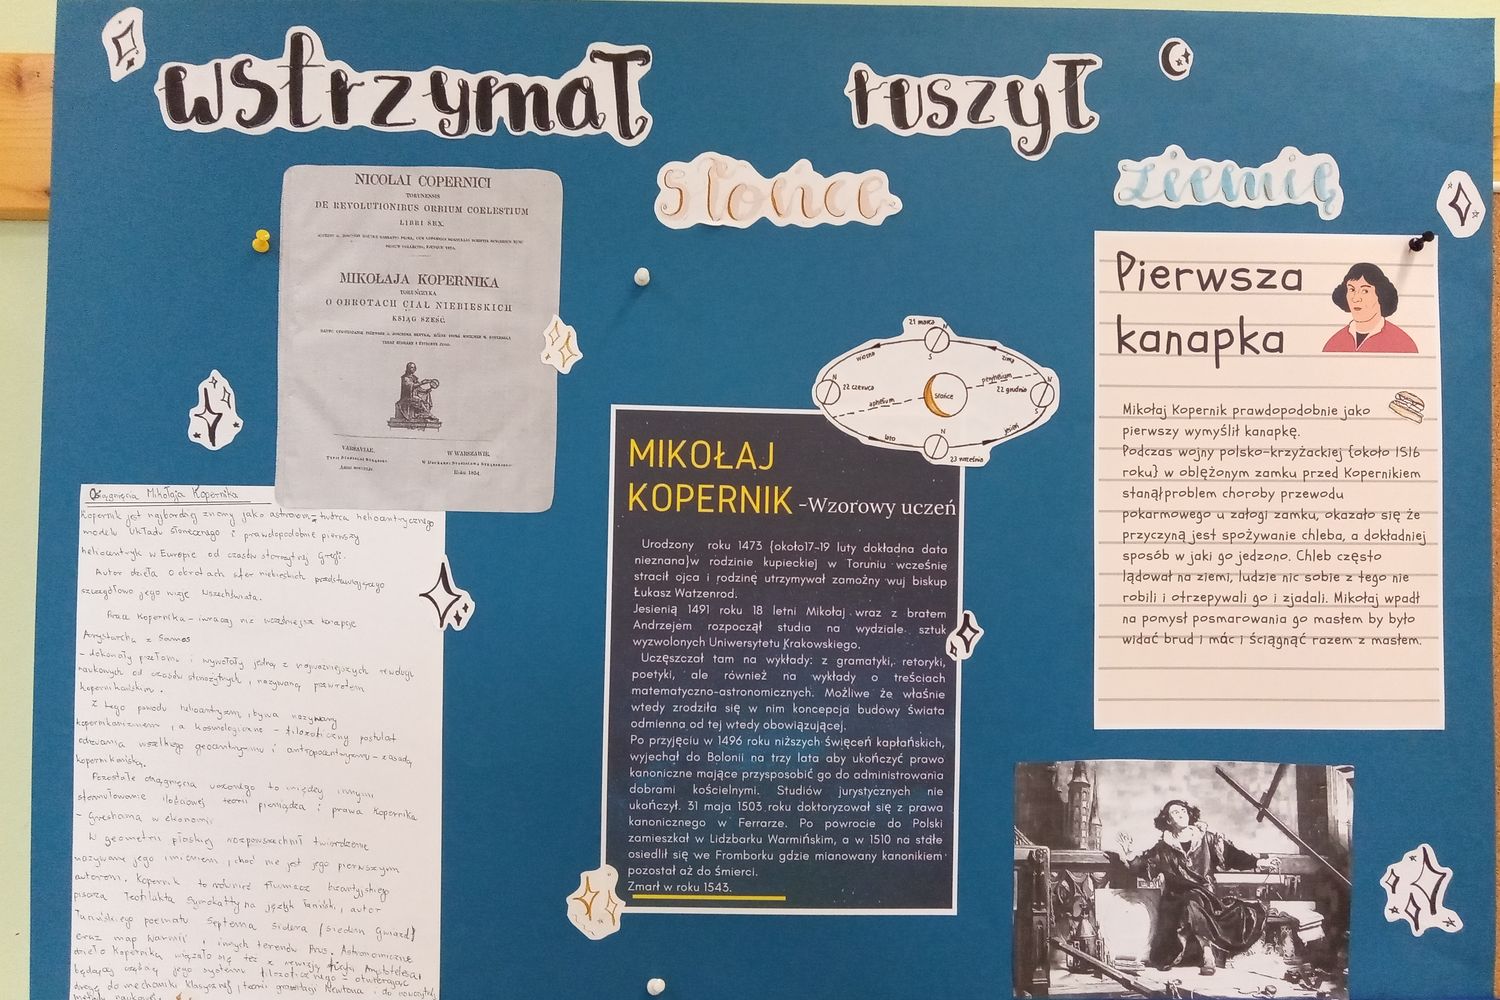 wstrzymał ruszył
słońce ziemię
NICOLAI COPERNICI
TORUNENSIS
DE REVOLUTIONIBUS ORBIUM COELESTIUM
LIBRI SEX.
MIKOŁAJA KOPERNIKA
TORUŃCZYKA
O OBROTACH CIAŁ NIEBIESKICH
KSIĄG SZEŚĆ.
VARSAVIAE.
W WARSZAWIE.
Roku 1854.
21 marca
N
S
wiosna
zima
N
22 czerwca
słońce
peryhelium
22 grudnia
N
S
aphelium
lato
jesień
N
23 września
MIKOŁAJ
KOPERNIK -Wzorowy uczeń
Urodzony roku 1473 {około17-19 luty dokładna data
nieznana}w rodzinie kupieckiej w Toruniu wcześnie
stracił ojca i rodzinę utrzymywał zamożny wuj biskup
Łukasz Watzenrod.
Jesienią 1491 roku 18 letni Mikołaj wraz z bratem
Andrzejem rozpoczął studia na wydziale sztuk
wyzwolonych Uniwersytetu Krakowskiego.
Uczęszczał tam na wykłady: z gramatyki, retoryki,
poetyki, ale również na wykłady o treściach
matematyczno-astronomicznych. Możliwe że właśnie
wtedy zrodziła się w nim koncepcja budowy świata
odmienna od tej wtedy obowiązującej.
Po przyjęciu w 1496 roku niższych święceń kapłańskich,
wyjechał do Bolonii na trzy lata aby ukończyć prawo
kanoniczne mające przysposobić go do administrowania
dobrami kościelnymi. Studiów jurystycznych nie
ukończył. 31 maja 1503 roku doktoryzował się z prawa
kanonicznego w Ferrarze. Po powrocie do Polski
zamieszkał w Lidzbarku Warmińskim, a w 1510 na stałe
osiedlił się we Fromborku gdzie mianowany kanonikiem
pozostał aż do śmierci.
Zmarł w roku 1543.
Pierwsza
kanapka
Mikołaj Kopernik prawdopodobnie jako
pierwszy wymyślił kanapkę.
Podczas wojny polsko-krzyżackiej {około 1516
roku} w oblężonym zamku przed Kopernikiem
stanął problem choroby przewodu
pokarmowego u załogi zamku, okazało się że
przyczyną jest spożywanie chleba, a dokładniej
sposób w jaki go jedzono. Chleb często
lądował na ziemi, ludzie nic sobie z tego nie
robili i otrzepywali go i zjadali. Mikołaj wpadł
na pomysł posmarowania go masłem by było
widać brud i móc i ściągnąć razem z masłem.
Osiągnięcia Mikołaja Kopernika
Kopernik jest najbardziej znany jako astronom, twórca heliocentrycznego
modelu Układu Słonecznego i prawdopodobnie pierwszy
heliocentryk w Europie od czasów starożytnej Grecji.
Autor dzieła O obrotach sfer niebieskich przedstawiającego
szczegółowo jego wizję Wszechświata.
Praca Kopernika - inaczej niż wcześniejsze koncepcje
Arystarcha z Samos
- dokonały przełomu i wywołały jedną z najważniejszych rewolucji
naukowych od czasów starożytnych, nazywaną przewrotem
kopernikańskim.
Z tego powodu heliocentryzm bywa nazywany
kopernikanizmem, a kosmologiczno - filozoficzny postulat
odrzucenia wszelkiego geocentryzmu i antropocentryzmu - zasadą
kopernikańską.
Pozostałe osiągnięcia uczonego to między innymi
sformułowanie ilościowej teorii pieniądza i prawa Kopernika
- Greshama w ekonomii
W geometrii płaskiej rozpowszechnił twierdzenie
nazywane jego imieniem, choć nie jest jego pierwszym
autorem. Kopernik to również tłumacz bizantyjskiego
pisarza Teofilakta Symokatty na język łaciński, autor
łacińskiego poematu Septem sidera {siedem gwiazd}
oraz map Warmii i innych terenów Prus. Astronomiczne
dzieło Kopernika wiązało się też z rewizją fizyki Arystotelesa
będącej częścią jego systemu filozoficznego - otwierając
drogę do mechaniki klasycznej, teorii grawitacji Newtona i do nowożytnej
metody naukowej